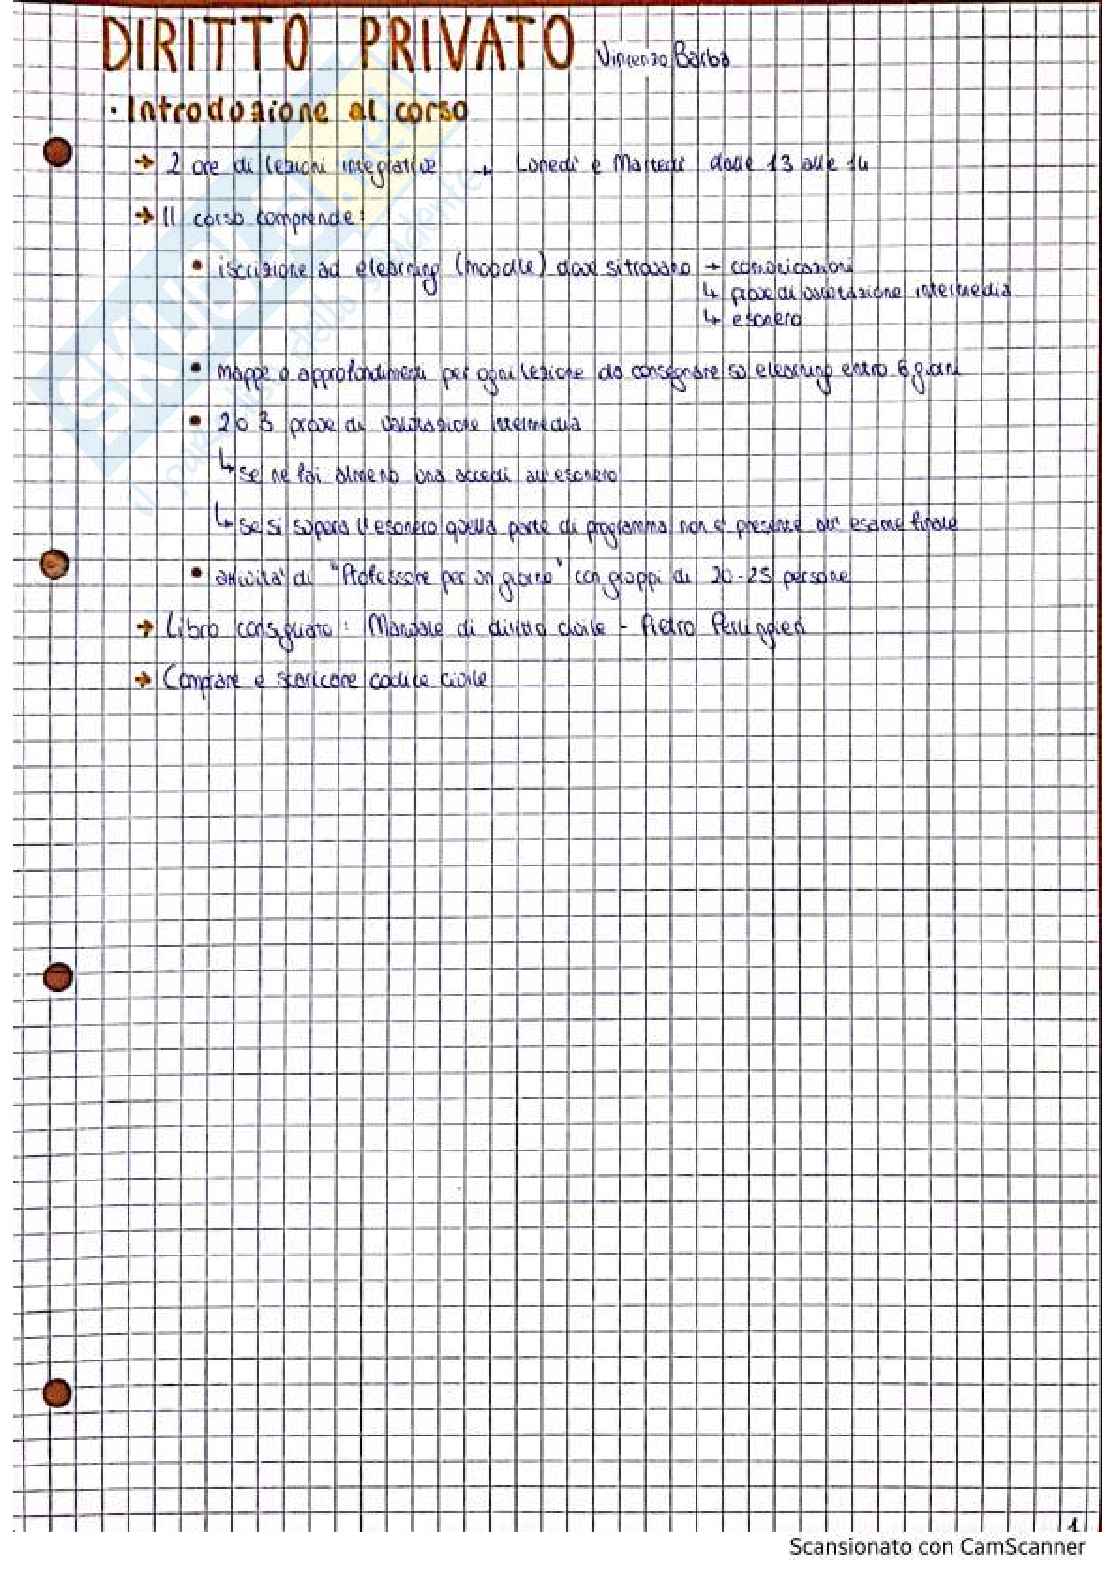 DIRITTO PRIVATO Vincenzo Barba
· Introduzione al corso
→ 2 ore di lezioni integrative → Lunedì e Martedì dalle 13 alle 14
→ Il corso comprende:
• iscrizione ad elearning (moodle) dove si trovano → comunicazioni
↳ prove di valutazione intermedia
↳ esonero
• mappe o approfondimenti per ogni lezione da consegnare su elearning entro 6 giorni
• 2 o 3 prove di valutazione intermedia
↳ se ne fai almeno una accedi all'esonero
↳ se si supera l'esonero quella parte di programma non è presente all'esame finale
• attività di "Professore per un giorno" con gruppi di 20-25 persone
→ Libro consigliato: Manuale di diritto civile - Pietro Perlingieri
→ Comprare e scaricare codice civile
SKUOLA
il paradiso dello studente
1
Scansionato con CamScanner